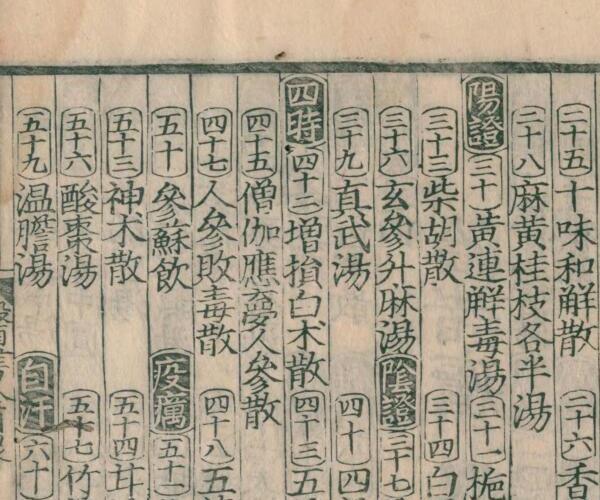 二十五 十味和解散 二十六 香
二十八 麻黃桂枝各半湯
陽證 三十 黃連解毒湯 三十一 梔
三十三 柴胡散 三十四 白
三十六 玄參升麻湯 陰證 三十七
三十九 真武湯 四十 四
四時 四十二 增損白术散 四十三 五
四十五 僧伽應夢人參散
四十七 人參敗毒散 四十八 五
五十 參蘇飲 疫癘 五十一
五十三 神术散 五十四 甘
五十六 酸棗湯 五十七 竹
五十九 温膽湯 自汗 六十